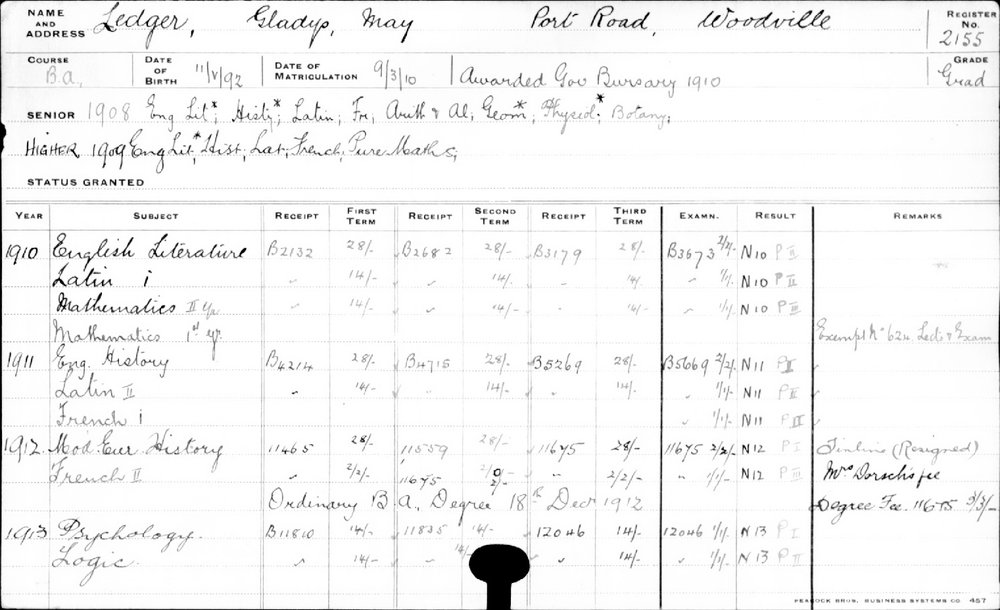 NAME AND ADDRESS Ledger, Gladys, May Port Road, Woodville REGISTER No. 2155
COURSE B.A. DATE OF BIRTH 11/V/92 DATE OF MATRICULATION 9/3/10 Awarded Gov Bursary 1910 GRADE Grad
SENIOR 1908 Eng Lit*; Histy*; Latin; Fr; Arith & Al; Geom*; Physiol*; Botany;
HIGHER 1909 Eng Lit*; Hist; Lat; French; Pure Maths;
STATUS GRANTED
YEAR SUBJECT RECEIPT FIRST TERM RECEIPT SECOND TERM RECEIPT THIRD TERM EXAMN. RESULT REMARKS
1910 English Literature B2132 28/- B2682 28/- B3179 28/- B3673 2/2/- N10 P II
Latin i " 14/- " 14/- " 14/- " 1/1/- N10 P II
Mathematics II yr " 14/- " 14/- " 14/- " 1/1/- N10 P III
Mathematics 1st yr. Exempt No 624 Lects & Exam
1911 Eng. History B4214 28/- B4715 28/- B5269 28/- B5669 2/2/- N11 P II
Latin II 14/- 14/- 14/- " 1/1/- N11 P II
French i " 1/1/- N11 P II
1912 Mod. Eur. History 11465 28/- 11559 28/- 11675 28/- 11675 2/2/- N12 P I Tinline (Resigned)
French II " 2/2/- 11675 2/- " 2/2/- " 1/1/- N12 P II Mrs Dorsch's fee
Ordinary B.A. Degree 18th Decr 1912 Degree Fee 11675 3/3/-
1913 Psychology B11810 14/- 11835 14/- 12046 14/- 12046 1/1/- N13 P I
Logic " 14/- " 14/- " 14/- " 1/1/- N13 P II
PEACOCK BROS. BUSINESS SYSTEMS CO 457